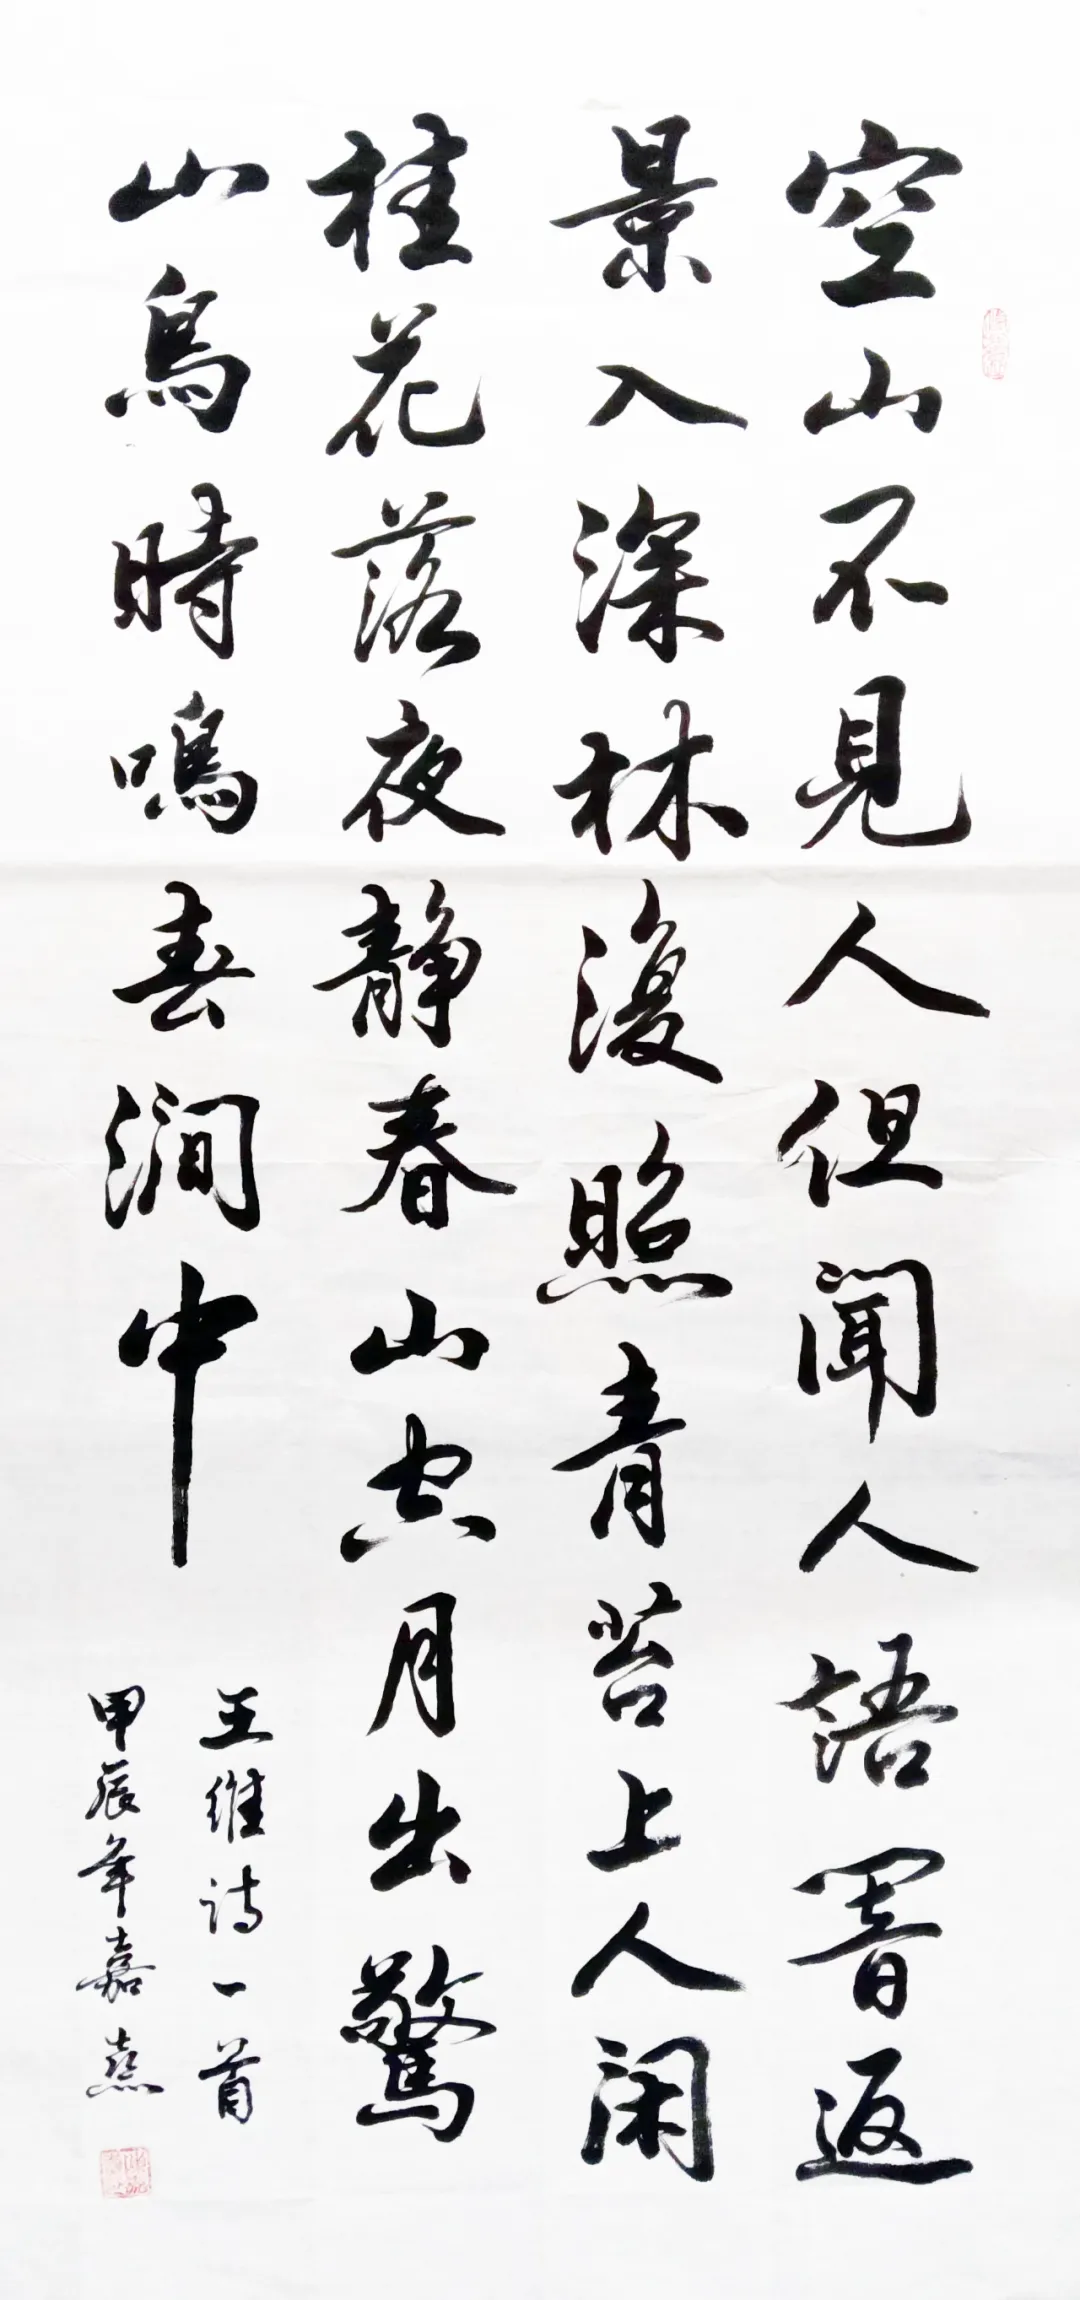 空山不見人但聞人語響返
景入深林復照青苔上人閑
桂花落夜静春山空月出驚
山鳥時鳴春澗中
王維詩一首
甲辰年嘉